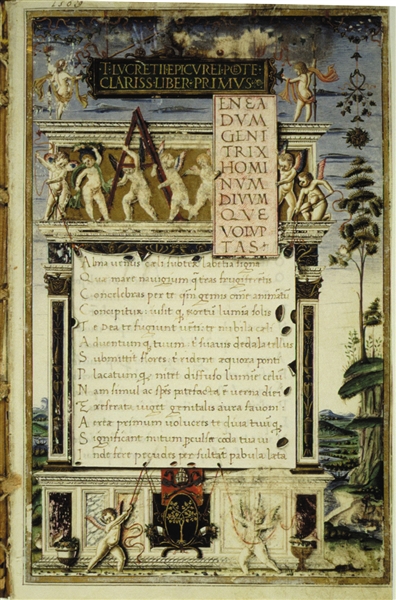 1569
·T·LVCRETII·EPICVREI·POTE·
CLARISS·LIBER·PRIMVS·
A
ENEA
DVM
GENI
TRIX
HOMI
NVM
DIVVM
QVE
VOLVP
TAS
Alma uenus cæli subter labentia signa
Quæ mare nauigerum q̄ terras frugiferentis
Concelebras per te genus omne animantū
Concipitur uisitq; exortū lumina solis
Te Dea te fugiunt uenti te nubila cæli
Aduentumq; tuum t' suauis dedala tellus
Submittit flores t' rident æquora ponti
Placatumq; nitet diffuso lumine celū
Nam simul ac spēs patefacta ē uerna diei
Et reserata uiget genitalis aura fauoni
Aeriæ primum uolucres te diua tuūq;
Significant initum perculsæ corda tua ui
Inde feræ pecudes persultant pabula læta